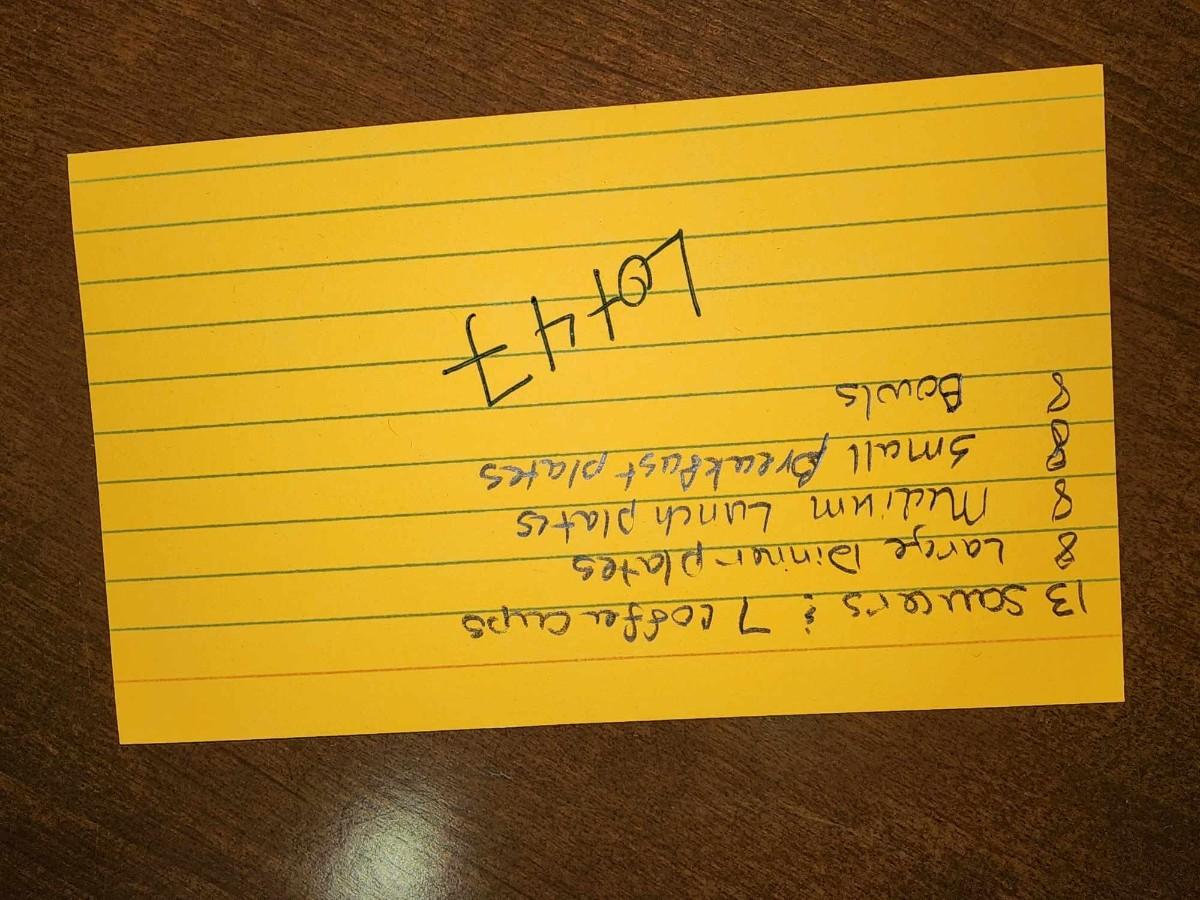 13 saucers & 7 coffee cups
8 Large Dinner plates
8 Medium Lunch plates
8 small Breakfast plates
8 Bowls
Lot 47